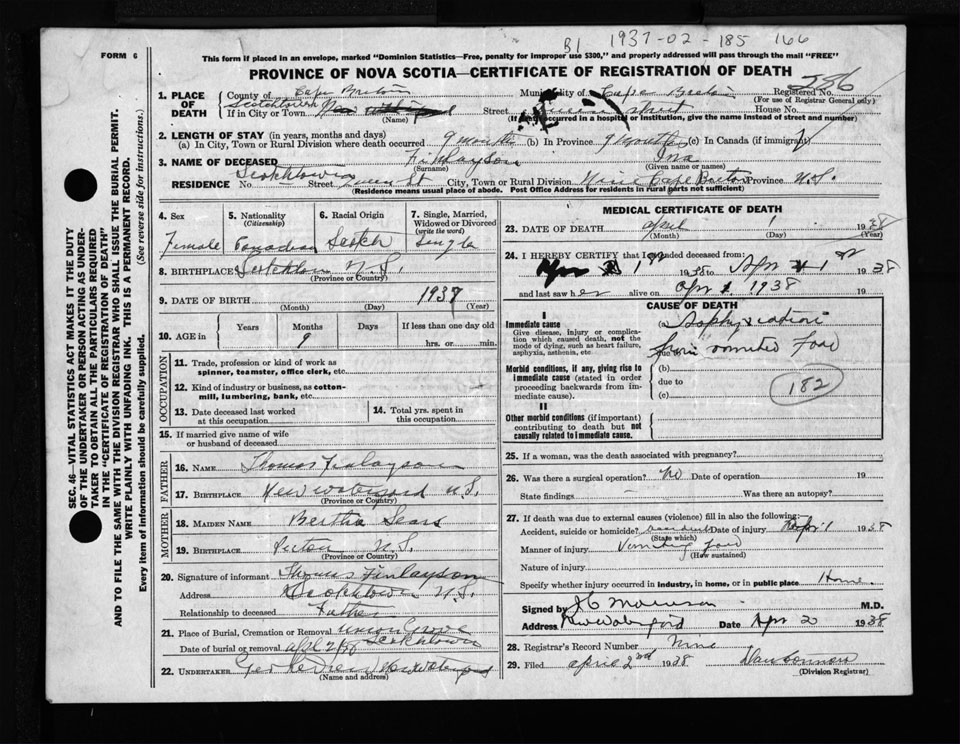 B1 1937-02-185 166
FORM 6
This form if placed in an envelope, marked "Dominion Statistics—Free, penalty for improper use $300," and properly addressed will pass through the mail "FREE"
PROVINCE OF NOVA SCOTIA—CERTIFICATE OF REGISTRATION OF DEATH
286
1. PLACE OF DEATH County of Cape Breton Municipality of Cape Breton Registered No.
(For use of Registrar General only)
Scotchtown
If in City or Town Street street House No.
(Name) (If death occurred in a hospital or institution, give the name instead of street and number)
2. LENGTH OF STAY (in years, months and days)
(a) In City, Town or Rural Division where death occurred 9 months (b) In Province 9 months (c) In Canada (if immigrant)
3. NAME OF DECEASED Finlayson Ina
(Surname) (Given name or names)
Scotchtown
RESIDENCE No. Street St City, Town or Rural Division Cape Breton Province N.S.
(Residence means usual place of abode. Post Office Address for residents in rural parts not sufficient)
4. Sex Female
5. Nationality (Citizenship) Canadian
6. Racial Origin Scotch
7. Single, Married, Widowed or Divorced (write the word) Single
8. BIRTHPLACE Scotchtown N.S.
(Province or Country)
9. DATE OF BIRTH 1937
(Month) (Day) (Year)
10. AGE in Years Months 9 Days If less than one day old hrs. or min.
OCCUPATION
11. Trade, profession or kind of work as spinner, teamster, office clerk, etc.
12. Kind of industry or business, as cotton-mill, lumbering, bank, etc.
13. Date deceased last worked at this occupation
14. Total yrs. spent in this occupation
15. If married give name of wife or husband of deceased
FATHER
16. NAME Thomas Finlayson
17. BIRTHPLACE New Waterford N.S.
(Province or Country)
MOTHER
18. MAIDEN NAME Bertha Sears
19. BIRTHPLACE Pictou N.S.
(Province or Country)
20. Signature of informant Thomas Finlayson
Address Scotchtown N.S.
Relationship to deceased Father
21. Place of Burial, Cremation or Removal Union Grove
Scotchtown
Date of burial or removal
22. UNDERTAKER New Waterford
(Name and address)
MEDICAL CERTIFICATE OF DEATH
23. DATE OF DEATH April 1 1938
(Month) (Day) (Year)
24. I HEREBY CERTIFY that I attended deceased from:
Apr 1 1938 to Apr 1 1938
and last saw her alive on Apr 1 1938 19
CAUSE OF DEATH
I
Immediate cause
Give disease, injury or complication which caused death, not the mode of dying, such as heart failure, asphyxia, asthenia, etc
(a) Asphyxiation
due to from vomited Food
Morbid conditions, if any, giving rise to immediate cause (stated in order proceeding backwards from immediate cause).
(b)
due to
(c)
182
II
Other morbid conditions (if important) contributing to death but not causally related to immediate cause.
25. If a woman, was the death associated with pregnancy?
26. Was there a surgical operation? No Date of operation 19
State findings Was there an autopsy?
27. If death was due to external causes (violence) fill in also the following:
Accident, suicide or homicide? accident Date of injury Apr 1 1938
(State which)
Manner of injury Vomiting food
(How sustained)
Nature of injury
Specify whether injury occurred in industry, in home, or in public place Home.
Signed by M.D.
Address New Waterford Date Apr 2 1938
28. Registrar's Record Number Nine
29. Filed April 2nd 1938
(Division Registrar)
SEC. 46—VITAL STATISTICS ACT MAKES IT THE DUTY
OF THE UNDERTAKER OR PERSON ACTING AS UNDER-
TAKER TO OBTAIN ALL THE PARTICULARS REQUIRED
IN THE "CERTIFICATE OF REGISTRATION OF DEATH"
AND TO FILE THE SAME WITH THE DIVISION REGISTRAR WHO SHALL ISSUE THE BURIAL PERMIT.
WRITE PLAINLY WITH UNFADING INK. THIS IS A PERMANENT RECORD.
Every item of information should be carefully supplied. (See reverse side for instructions.)